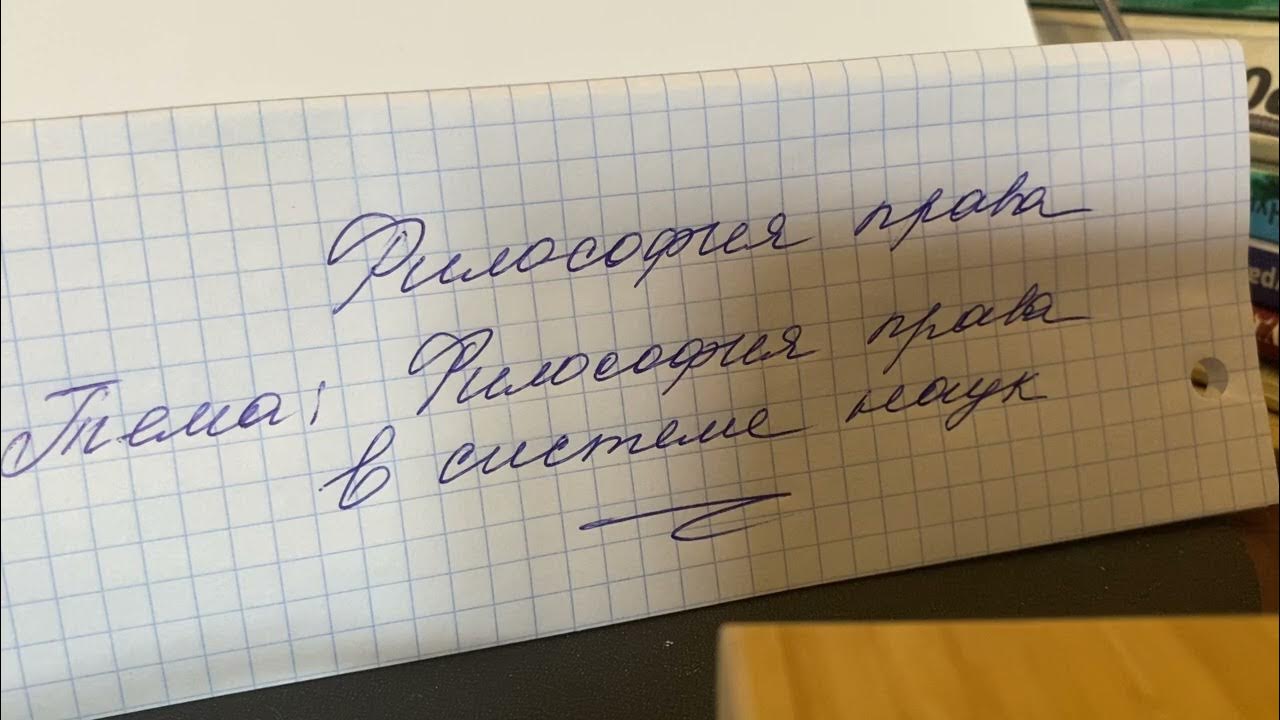 Философия права
Тема: Философия права
в системе наук